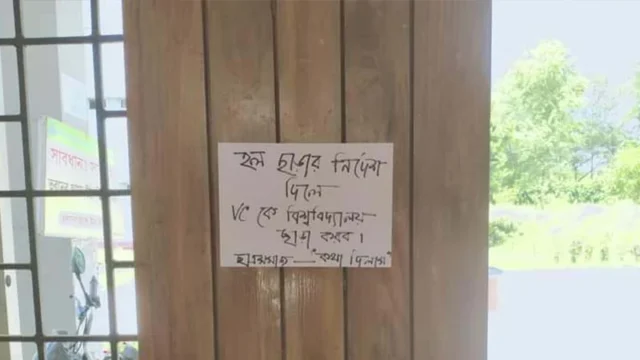 সাবধানতা
হল ছাড়ার নির্দেশ
দিলে
VC কে বিশ্ববিদ্যালয়
ছাড়া করব।
ছাত্রসমাজ — "কথা দিলাম"